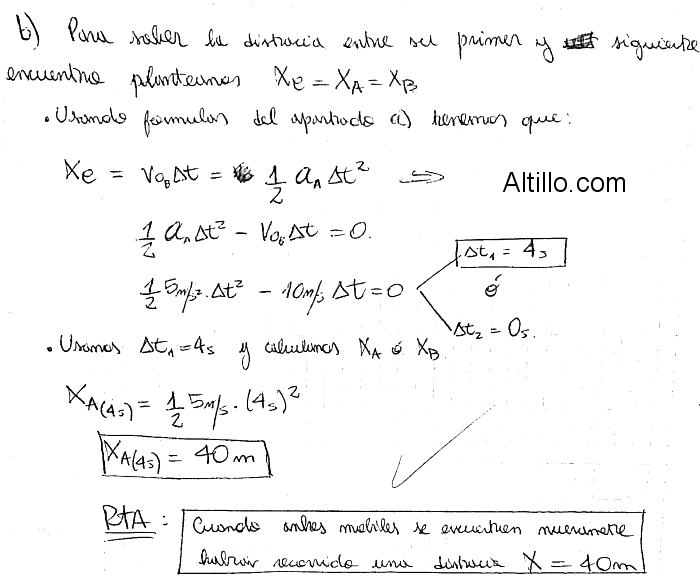 b) Para saber la distancia entre su primer y siguiente
encuentro planteamos Xe = XA = XB
• Usando formulas del apartado a) tenemos que:
Xe = V0B Δt = 1/2 aA Δt² ⇒
Altillo.com
1/2 aA Δt² - V0B Δt = 0.
1/2 5m/s². Δt² - 10m/s Δt = 0
Δt1 = 4s
ó
Δt2 = 0s.
• Usamos Δt1 = 4s y calculamos XA ó XB
XA(4s) = 1/2 5m/s. (4s)²
XA(4s) = 40m
RtA : Cuando ambos mobiles se encuentren nuevamente
habran recorrido una distancia X = 40m